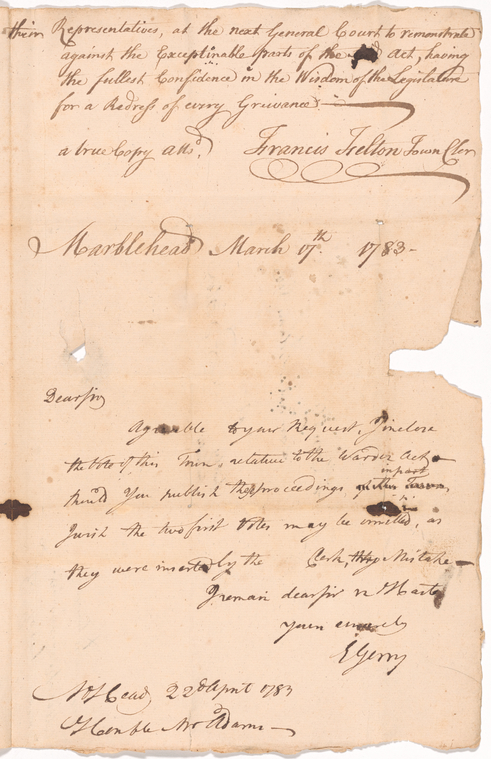 their Representatives, at the next General Court to remonstrate
against the Exceptinable parts of the said Act, having
the fullest Confidence in the Wisdom of the Legislature
for a Redress of every Grievance
a true Copy Attd.
Francis Felton Town Cler
Marblehead March 17th. 1783-
Dear sir
Agreable to your Request, I inclose
the Vote of this Town, relative to the Warden Act
should You publish the proceedings
in part
I wish the two first Votes may be omitted, as
they were inserted by the Clerk, thro Mistake
I remain dear sir in Haste
yours sincerely
E Gerry
MHead 22d April 1783
Honble Mr Adams